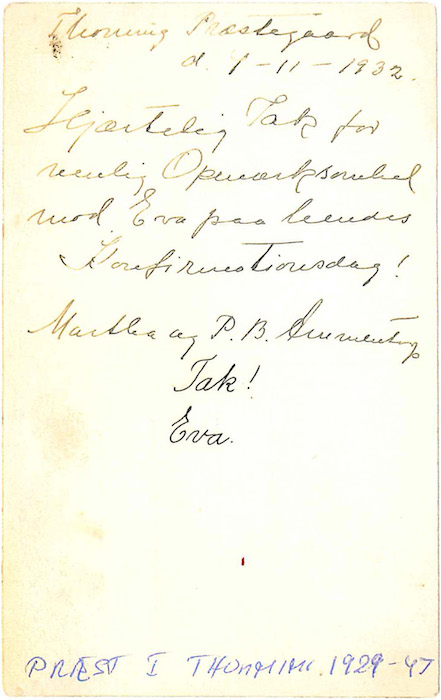 Thorning Præstegaard
d. 1-11-1932.
Hjærtelig Tak for
venlig Opmærksomhed
mod Eva paa hendes
Konfirmationsdag!
Martha og P. B.
Tak!
Eva.
PRÆST I THORNING 1929-47